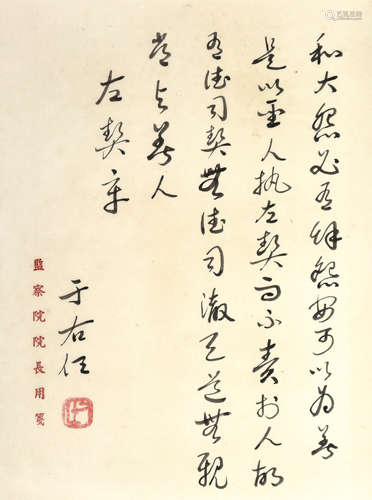 和大怨必有餘怨安可以為善
是以聖人執左契而不責於人故
有德司契無德司徹天道無親
常與善人
左契章
于右任
監察院院長用箋